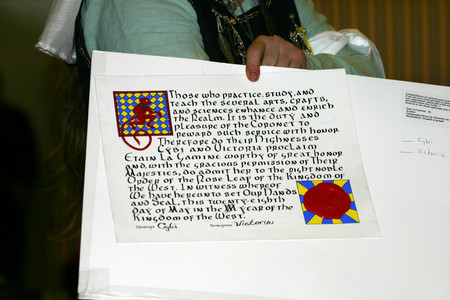 Those who practice, study, and
teach the several arts, crafts,
and sciences enhance and enrich
the Realm. It is the duty and
pleasure of the Coronet to
reward such service with honor.
Therefore do their Highnesses
Cybi and Victoria proclaim
Etain La Gamine worthy of great honor
and with the gracious permission of their
Majesties, do admit her to the right noble
Order of the Rose Leaf of the Kingdom of
the West. In witness whereof
We have hereunto set Our Hands
and Seal, this twenty-eighth
day of May in the year of the
Kingdom of the West.
Cybi Victoria
Cybi
Victoria